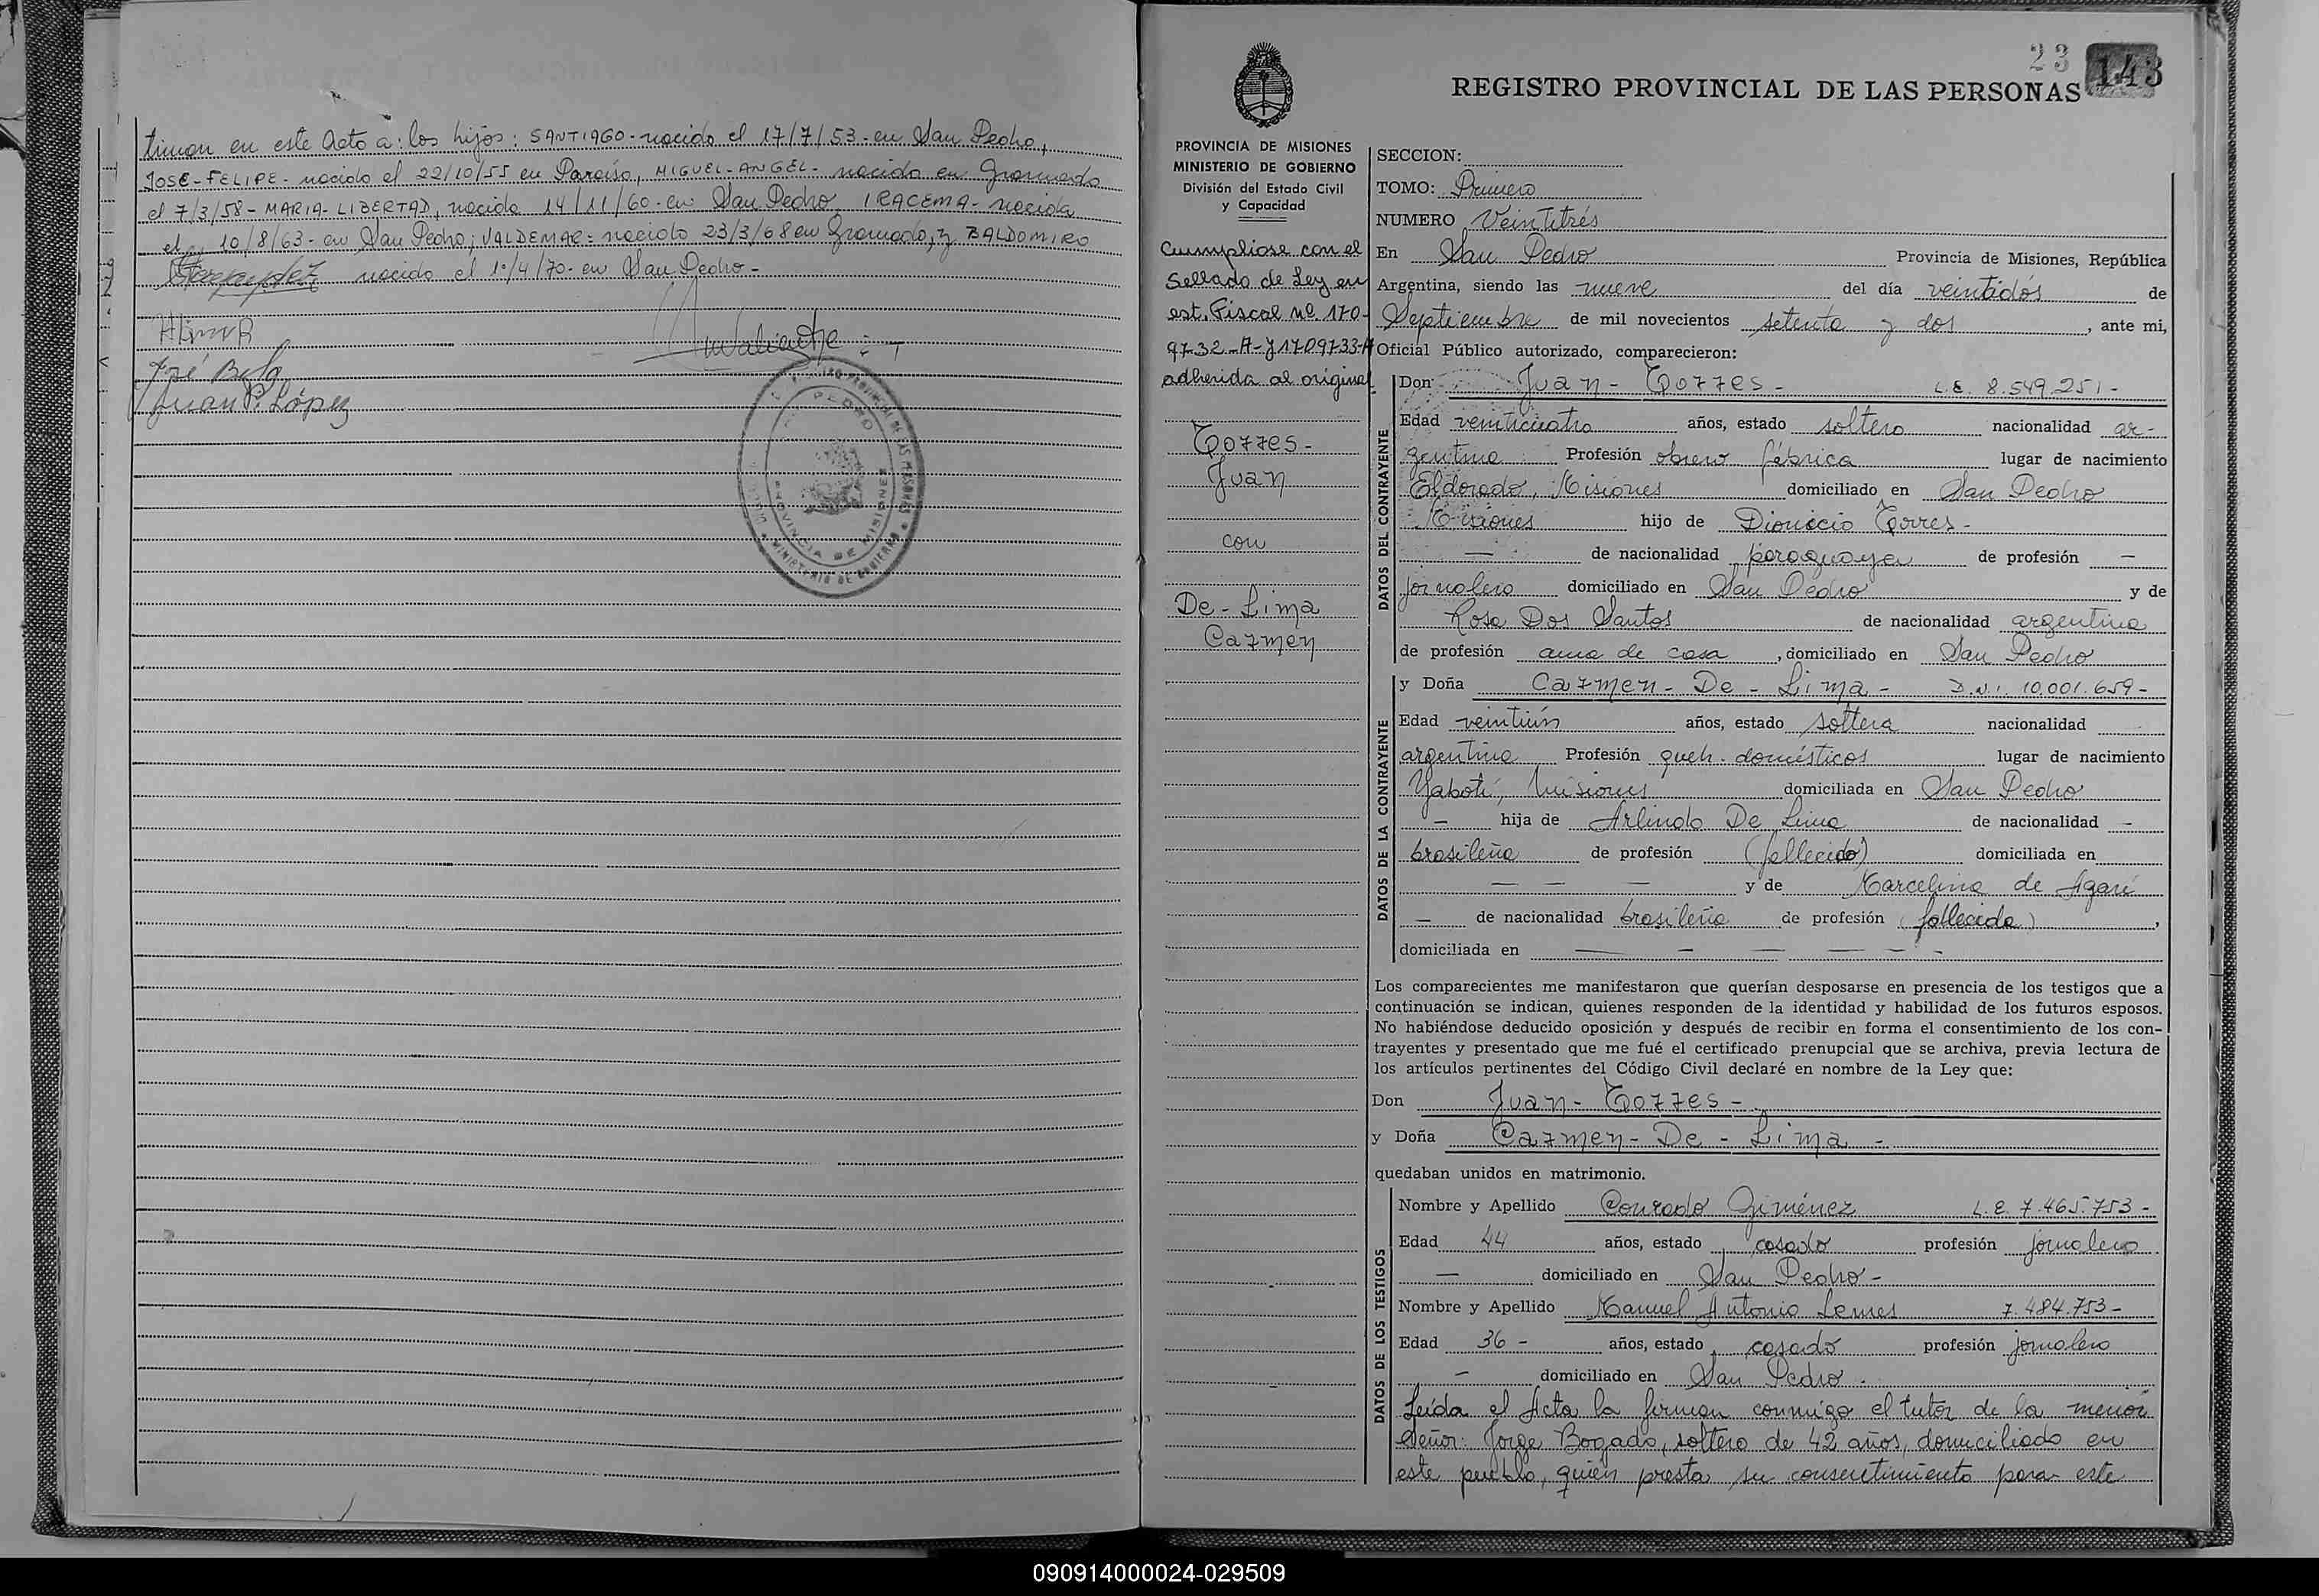 timan en este Acto a: los hijos: SANTIAGO - nacido el 17/7/53 - en San Pedro,
JOSE-FELIPE - nacido el 22/10/55 en Paraíso, MIGUEL-ANGEL - nacido en Gramado
el 7/3/58 - MARIA-LIBERTAD, nacida 14/11/60 - en San Pedro, IRACEMA - nacida
el 10/8/63 - en San Pedro; VALDEMAR = nacido 23/3/68 en Gramado, y BALDOMIRO
nacido el 1º/4/70 - en San Pedro -
José
Juan P. López
PEDRO
PROVINCIA DE MISIONES
MINISTERIO DE GOBIERNO
23
143
REGISTRO PROVINCIAL DE LAS PERSONAS
PROVINCIA DE MISIONES
MINISTERIO DE GOBIERNO
División del Estado Civil
y Capacidad
Cumpliose con el
Sellado de Ley en
est. Fiscal Nº 170-
9732-A-y 1709733-A
adherida al original
Torres -
Juan
con
De - Lima
Carmen
SECCION:
TOMO: Primero
NUMERO Veintitrés
En San Pedro Provincia de Misiones, República
Argentina, siendo las nueve del día veintidós de
Septiembre de mil novecientos setenta y dos, ante mi,
Oficial Público autorizado, comparecieron:
DATOS DEL CONTRAYENTE
Don Juan - Torres - L.E. 8.549.251 -
Edad veinticuatro años, estado soltero nacionalidad ar-
gentina Profesión obrero fábrica lugar de nacimiento
Eldorado, Misiones domiciliado en San Pedro
Misiones hijo de Dionicio Torres -
— de nacionalidad paraguaya de profesión —
jornalero domiciliado en San Pedro y de
Rosa Dos Santos de nacionalidad argentina
de profesión ama de casa, domiciliado en San Pedro
DATOS DE LA CONTRAYENTE
y Doña Carmen - De - Lima - D.N.I. 10.001.659 -
Edad veintiún años, estado soltera nacionalidad
argentina Profesión queh. domésticos lugar de nacimiento
Yabotí, Misiones domiciliada en San Pedro
— hija de Arlindo De Lima de nacionalidad —
brasileña de profesión (fallecido) domiciliada en
— — — y de Marcelina de Agaré
— de nacionalidad brasileña de profesión (fallecida),
domiciliada en — — — — — -
Los comparecientes me manifestaron que querían desposarse en presencia de los testigos que a
continuación se indican, quienes responden de la identidad y habilidad de los futuros esposos.
No habiéndose deducido oposición y después de recibir en forma el consentimiento de los con-
trayentes y presentado que me fué el certificado prenupcial que se archiva, previa lectura de
los artículos pertinentes del Código Civil declaré en nombre de la Ley que:
Don Juan - Torres -
y Doña Carmen - De - Lima -
quedaban unidos en matrimonio.
DATOS DE LOS TESTIGOS
Nombre y Apellido Conrado Giménez L.E. 7.465.753 -
Edad 44 años, estado casado profesión jornalero
— domiciliado en San Pedro -
Nombre y Apellido Manuel Antonio Lemes 7.484.753 -
Edad 36 - años, estado casado profesión jornalero
— domiciliado en San Pedro.
Leída el Acta la firman conmigo el tutor de la menor
Señor: Jorge Bogado, soltero de 42 años, domiciliado en
este pueblo, quien presta su consentimiento para este
090914000024-029509